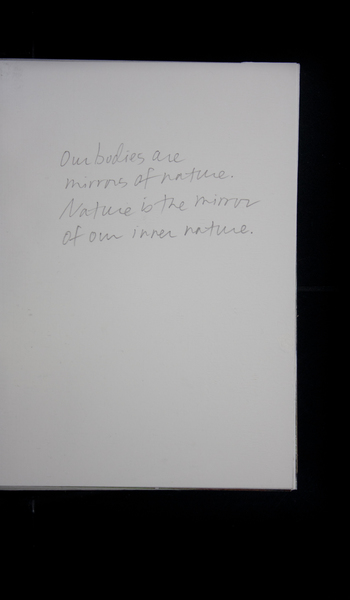 Our bodies are
mirrors of nature.
Nature is the mirror
of our inner nature.